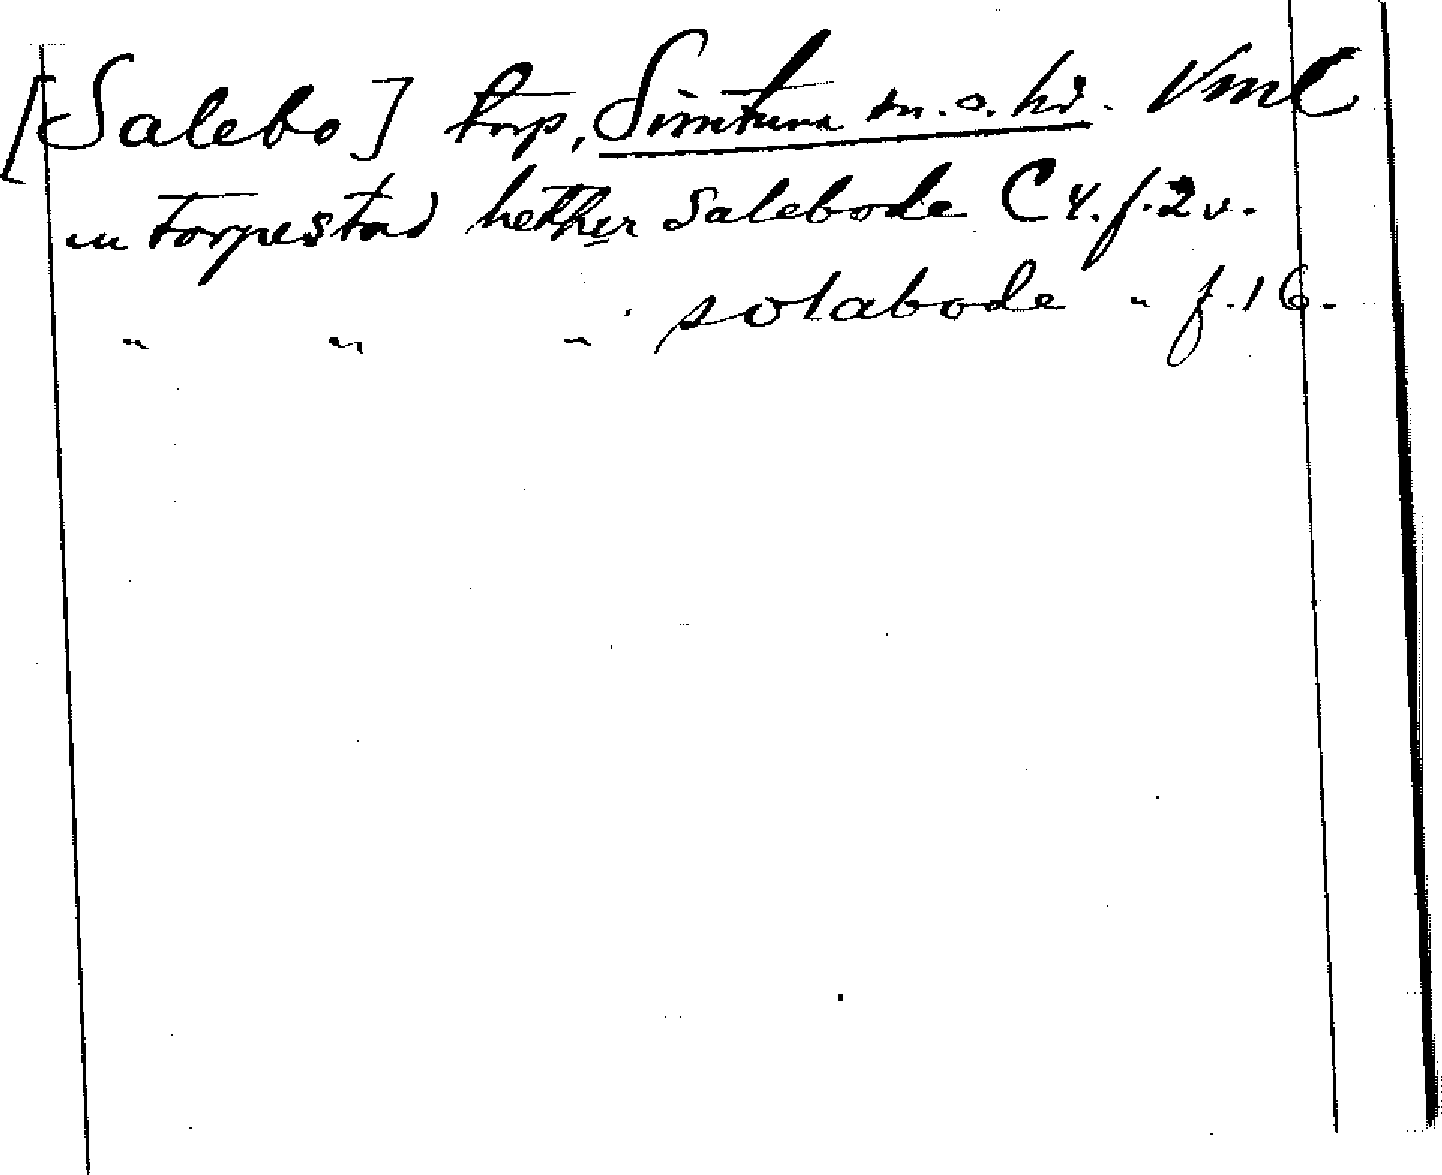 [Salebo] torp, Simtuna m. o. hd. Vml
en torpestad hether salebode C 4. f. 2 v.
" " " solabode " f. 16.